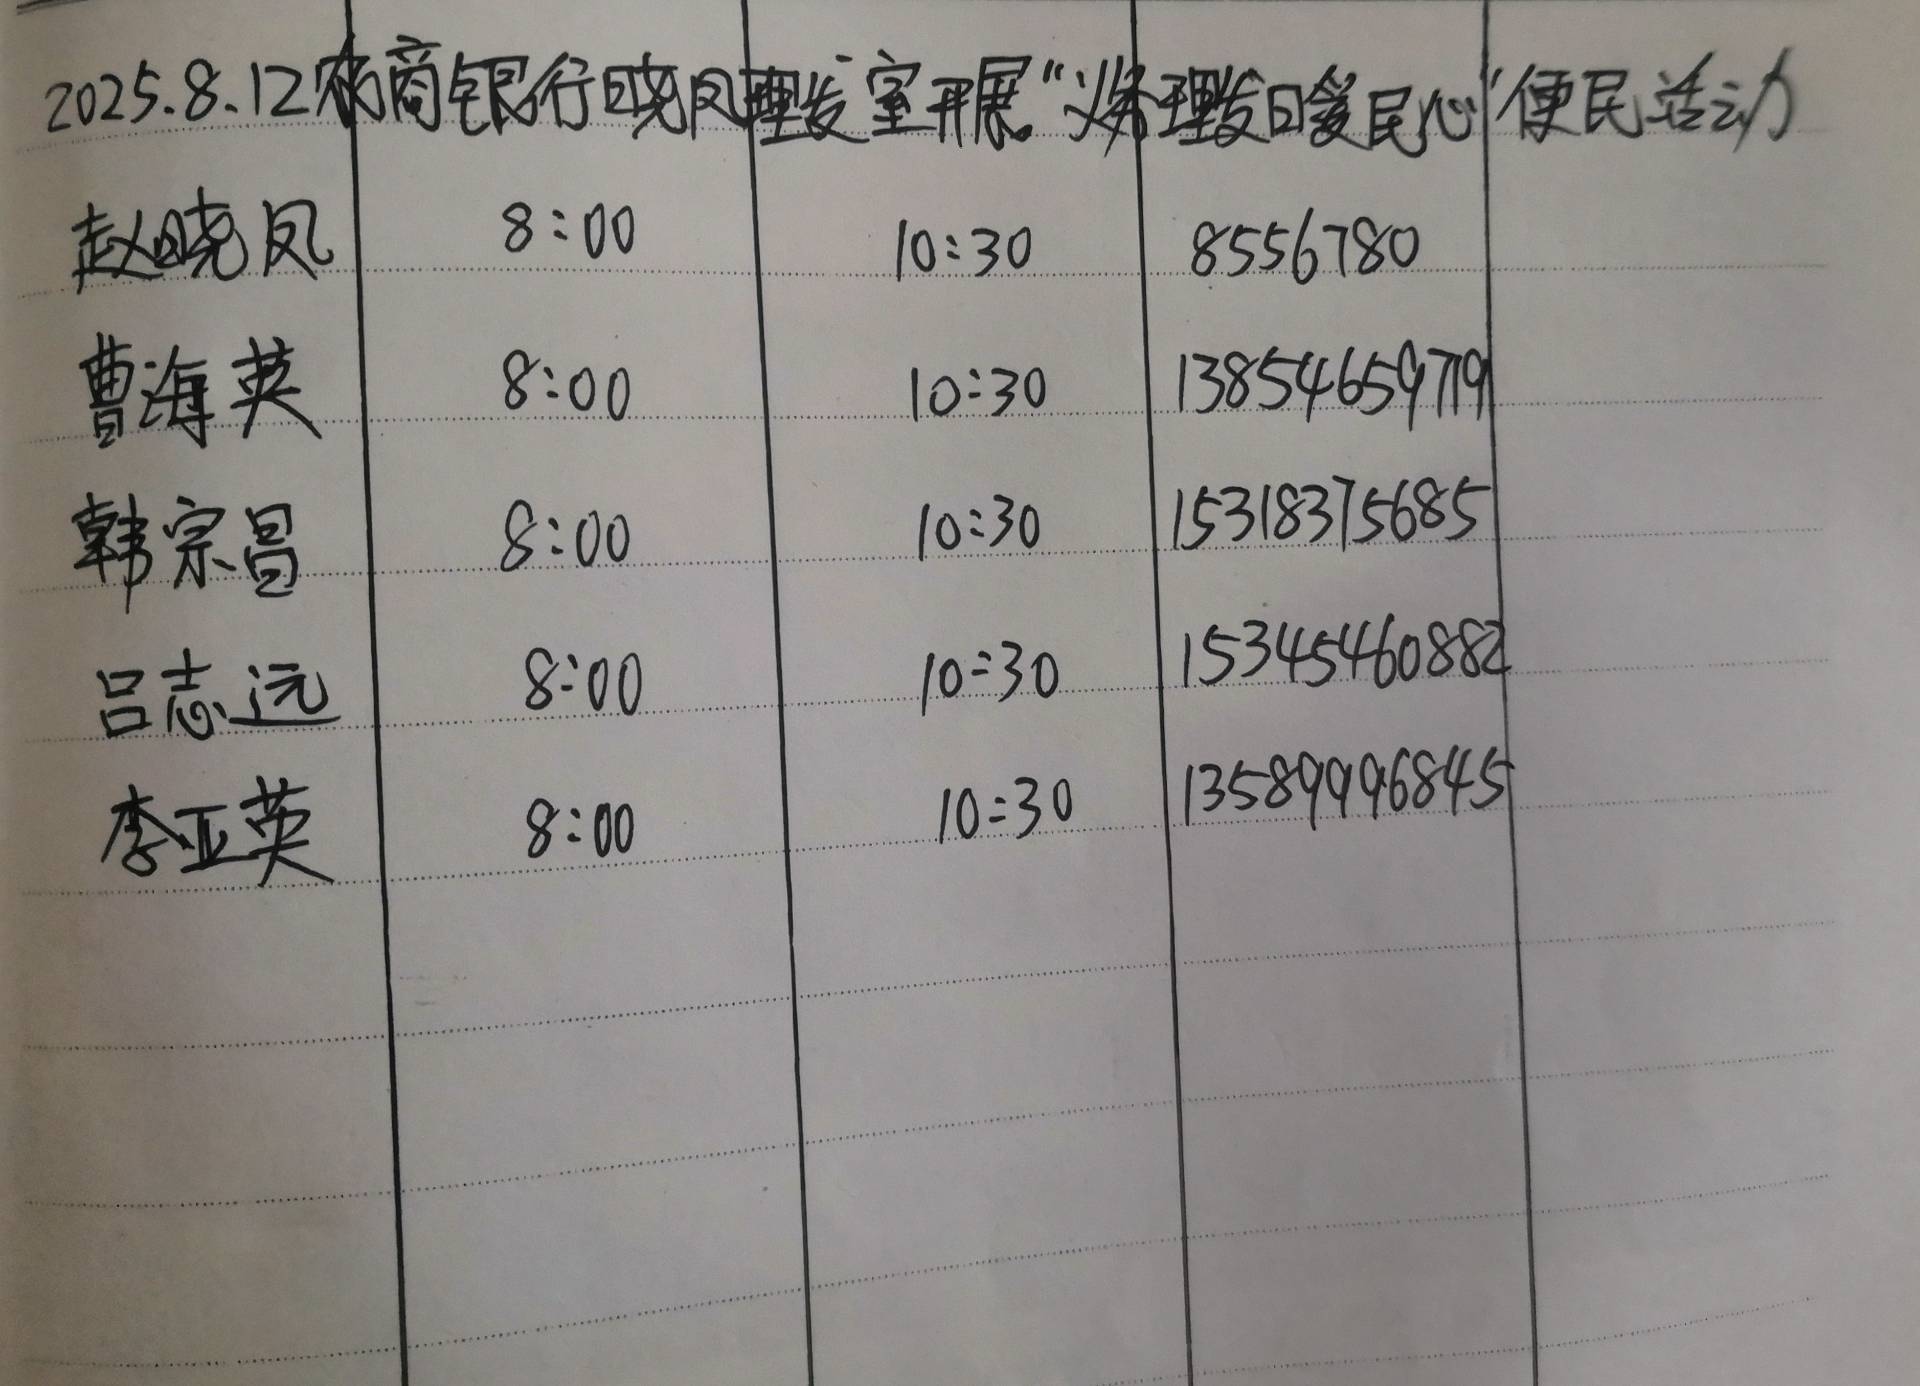 2025.8.12农商银行晓凤理发室开展“义务理发日爱民心”便民活动
赵晓凤 8:00 10:30 8556780
曹海英 8:00 10:30 13854659719
韩宗昌 8:00 10:30 15318375685
吕志远 8:00 10:30 15345460882
李亚英 8:00 10:30 13589996845